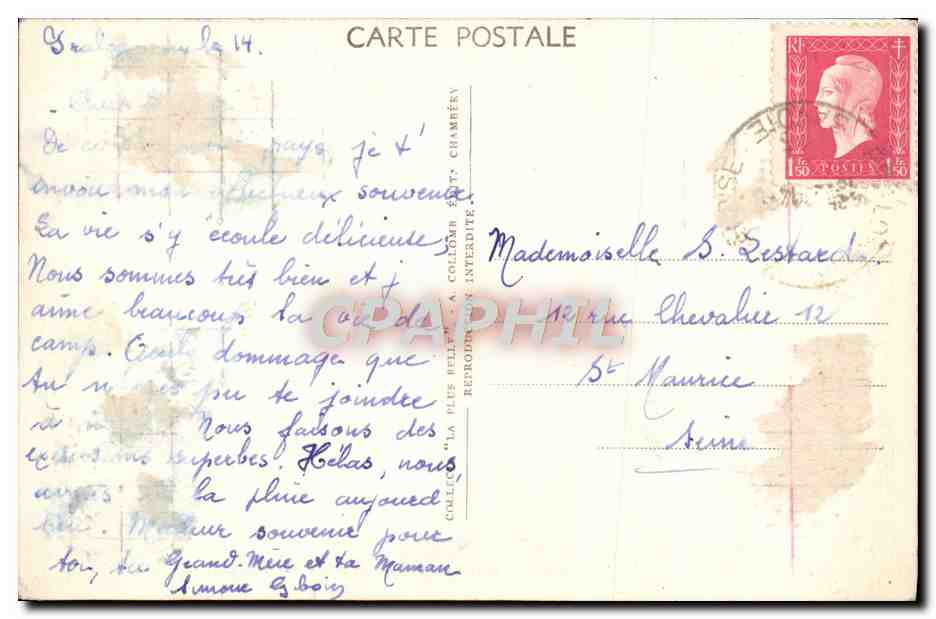 le 14.
CARTE POSTALE
De pays, je t'
envoie mon souvenir.
La vie s'y écoule délicieuse,
Nous sommes très bien et j
aime beaucoup la vie de
camp. dommage que
tu pu te joindre
à Nous faisons des
superbes. Hélas, nous
la pluie aujourd
hui. Meilleur souvenir pour
toi, ta Grand-Mère et ta Maman
Simone
COLLECT. "LA PLUS BELLE" - A. COLLOMB ÉDIT., CHAMBÉRY
REPRODUCTION INTERDITE
RF
1Fr.50 POSTES 1Fr.50
Mademoiselle S. Lestard
12 rue Chevalier 12
St Maurice
Seine
CPAPHIL